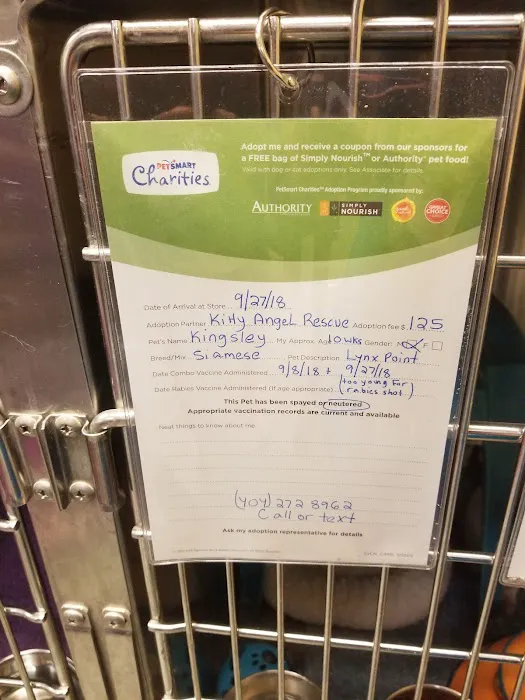 PETSMART
Charities
Adopt me and receive a coupon from our sponsors for
a FREE bag of Simply Nourish™ or Authority® pet food!
Valid with dog or cat adoptions only. See Associate for details.
PetSmart Charities™ Adoption Program proudly sponsored by:
AUTHORITY SIMPLY NOURISH GREAT CHOICE
Date of Arrival at Store 9/27/18
Adoption Partner Kitty Angel Rescue Adoption fee $ 125
Pet's Name Kingsley My Approx. Age 10wks Gender: M F
Breed/Mix Siamese Pet Description Lynx Point
Date Combo Vaccine Administered 9/8/18 + 9/27/18
Date Rabies Vaccine Administered (If age appropriate) (too young for rabies shot)
This Pet has been spayed or neutered
Appropriate vaccination records are current and available
Neat things to know about me
(404) 272 8962
Call or text
Ask my adoption representative for details